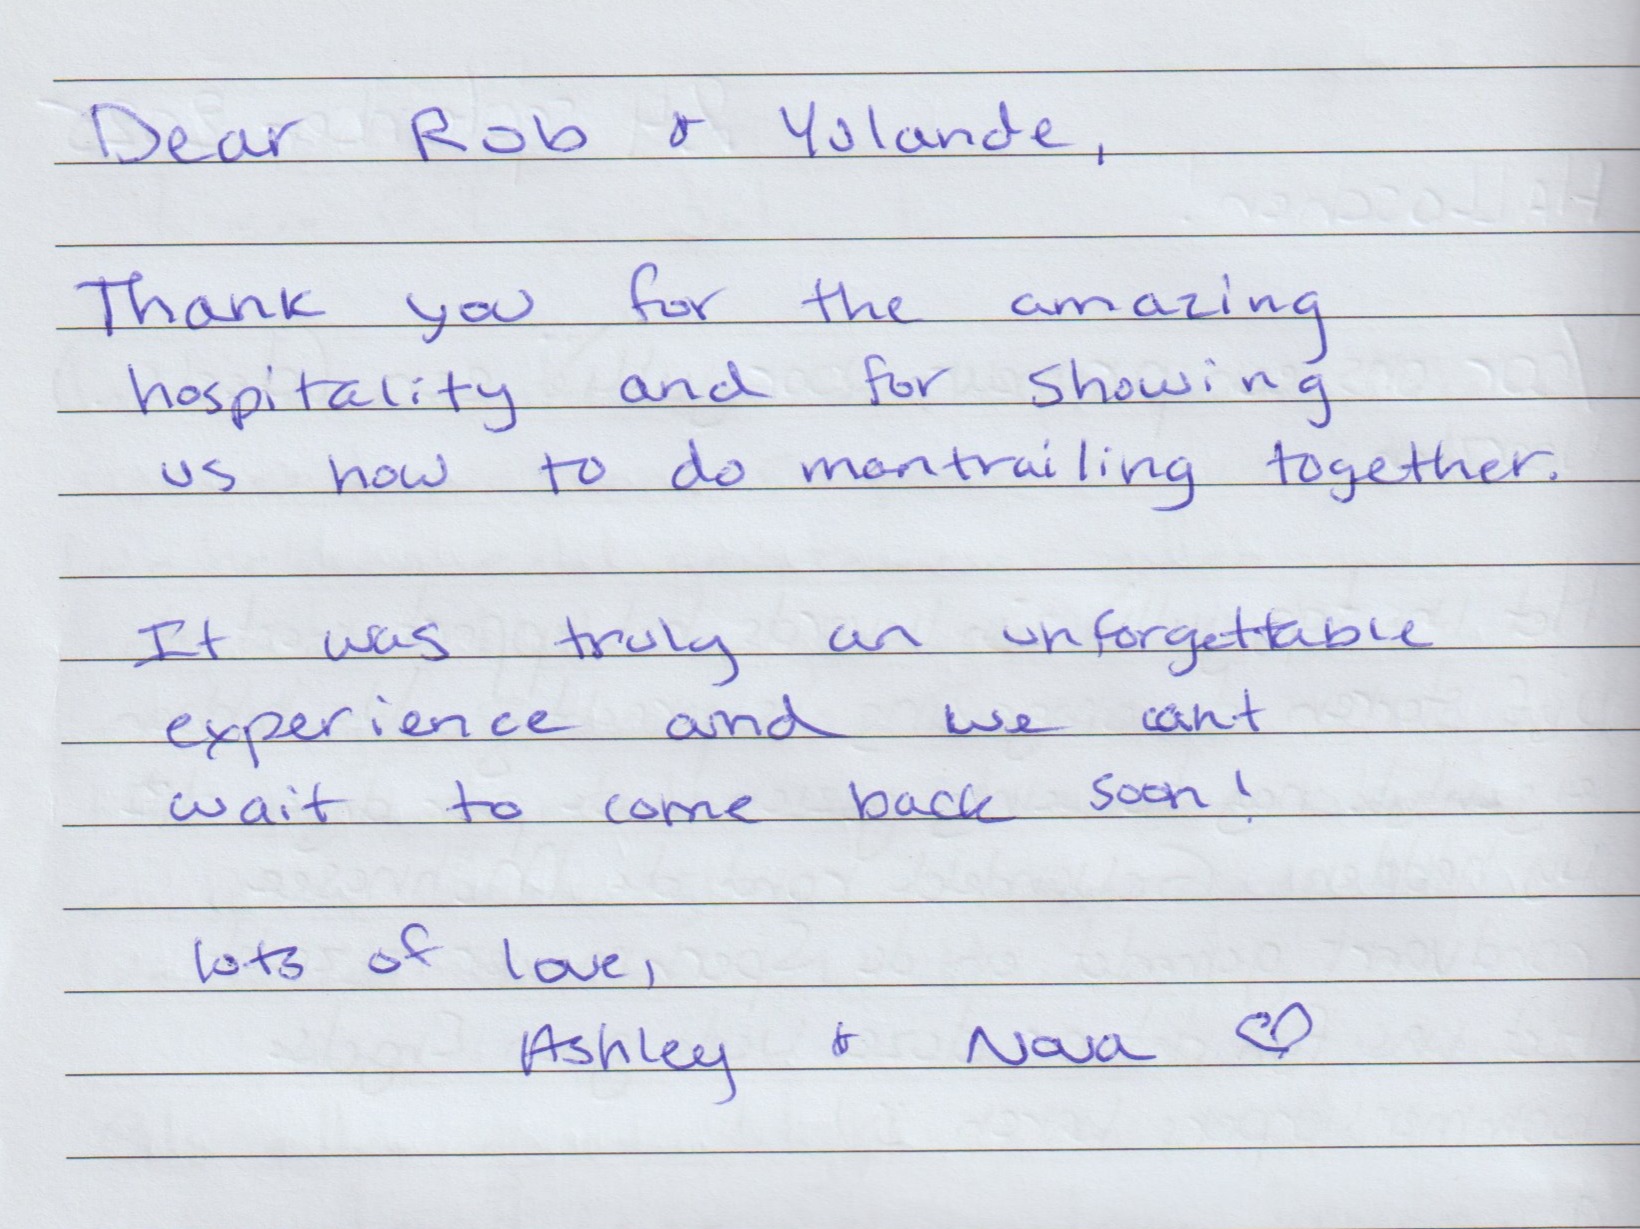 Dear Rob & Yolande,
Thank you for the amazing
hospitality and for showing
us how to do mantrailing together.
It was truly an unforgettable
experience and we can't
wait to come back soon!
lots of love,
Ashley & Nova ♡